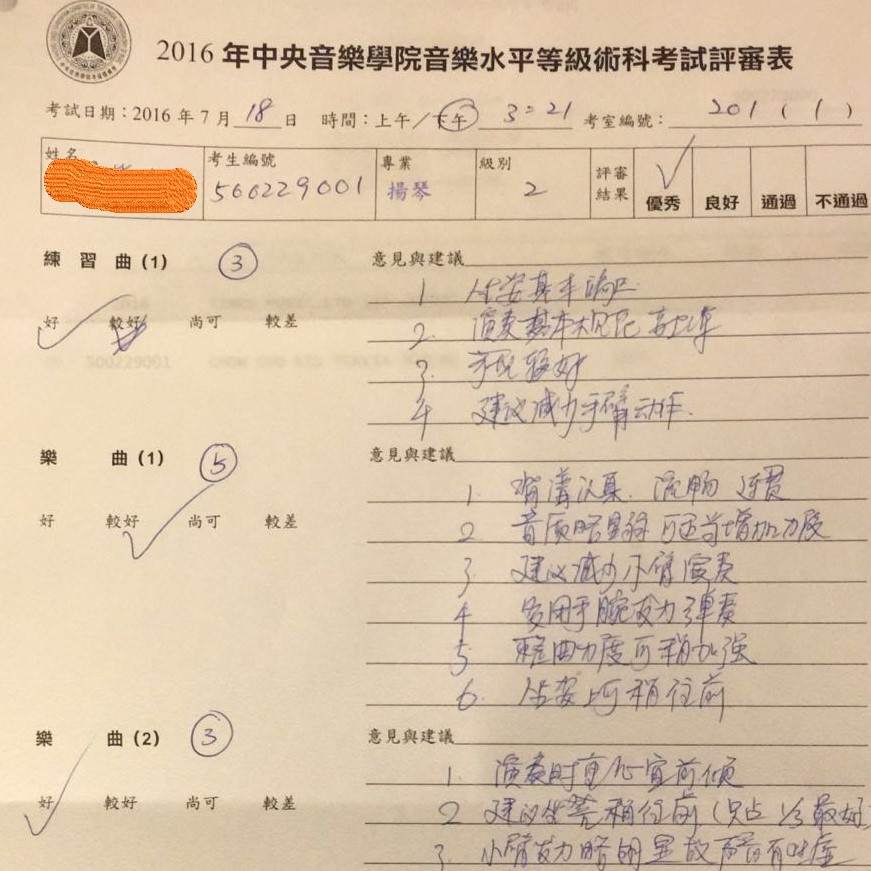 2016年中央音樂學院音樂水平等級術科考試評審表
考試日期：2016年7月18日 時間：上午／下午 3:21 考室編號：201(1)
姓名 考生編號 專業 級別 評審結果 優秀 良好 通過 不通過
500229001 揚琴 2
練習曲(1) 3 意見與建議
好 較好 尚可 較差
1. 坐姿基本端正
2. 演奏基本规范
3. 较好
4 建议减少手臂动作.
樂曲(1) 5 意見與建議
好 較好 尚可 較差
1. 流畅 连贯
2 音质略显 可适当增加力度
3 建议减少小臂演奏
4 多用手腕发力弹奏
5 整曲力度可稍加强
6. 坐姿上可稍往前
樂曲(2) 3 意見與建議
好 較好 尚可 較差
1. 演奏时重心宜前倾
2 建议坐凳稍往前(只占1/3最好)
3. 小臂发力略明显故声音有些虚